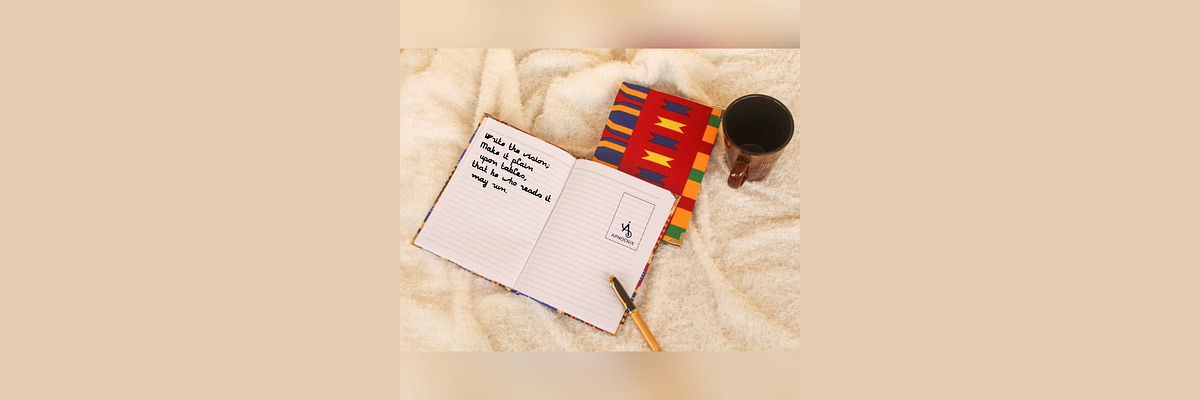 Write the vision;
Make it plain
upon tables,
that he who reads it
may run.
APHOENIX